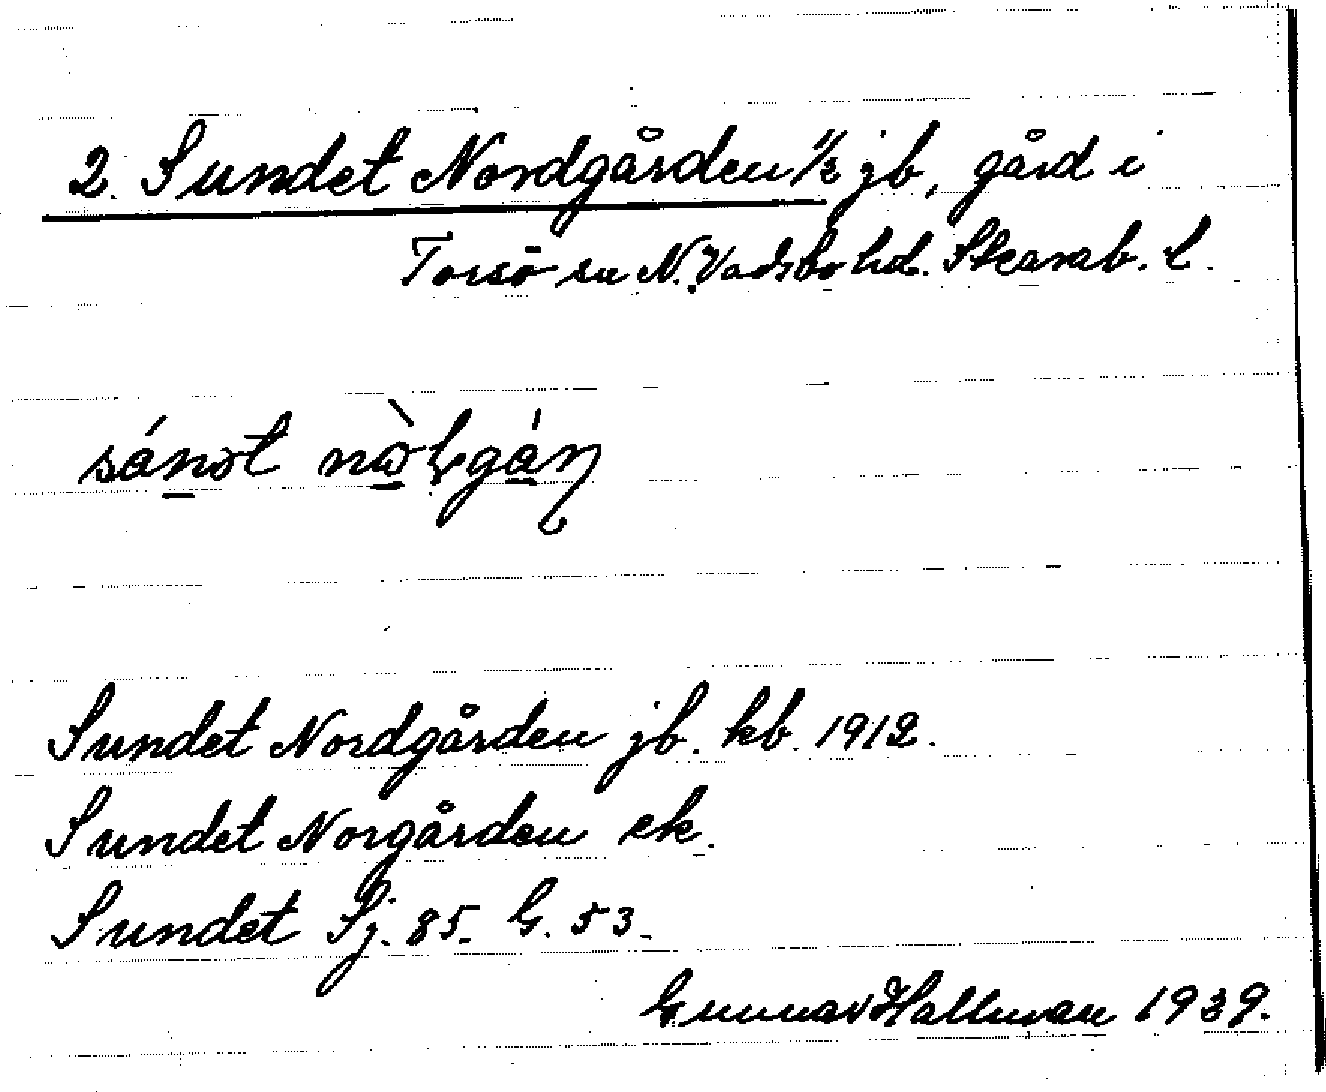 2. Sundet Nordgården 1/2 jb, gård i
Torsö sn N. Vadsbo hd. Skarab. l.
Sundet Nordgården jb. kb. 1912.
Sundet Norgården ek.
Sundet Sj. 85. G. 53.
Gunnar Hallman 1939.